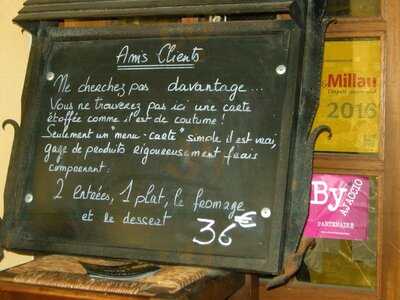 Amis Clients
Ne cherchez pas davantage...
Vous ne trouverez pas ici une carte
étoffée comme il est de coutume !
Seulement un "menu-carte" simple il est vrai,
gage de produits rigoureusement frais
comprenant :
2 entrées, 1 plat, le fromage
et le dessert 36€
Millau
2016
By
AJACCIO
PARTENAIRE